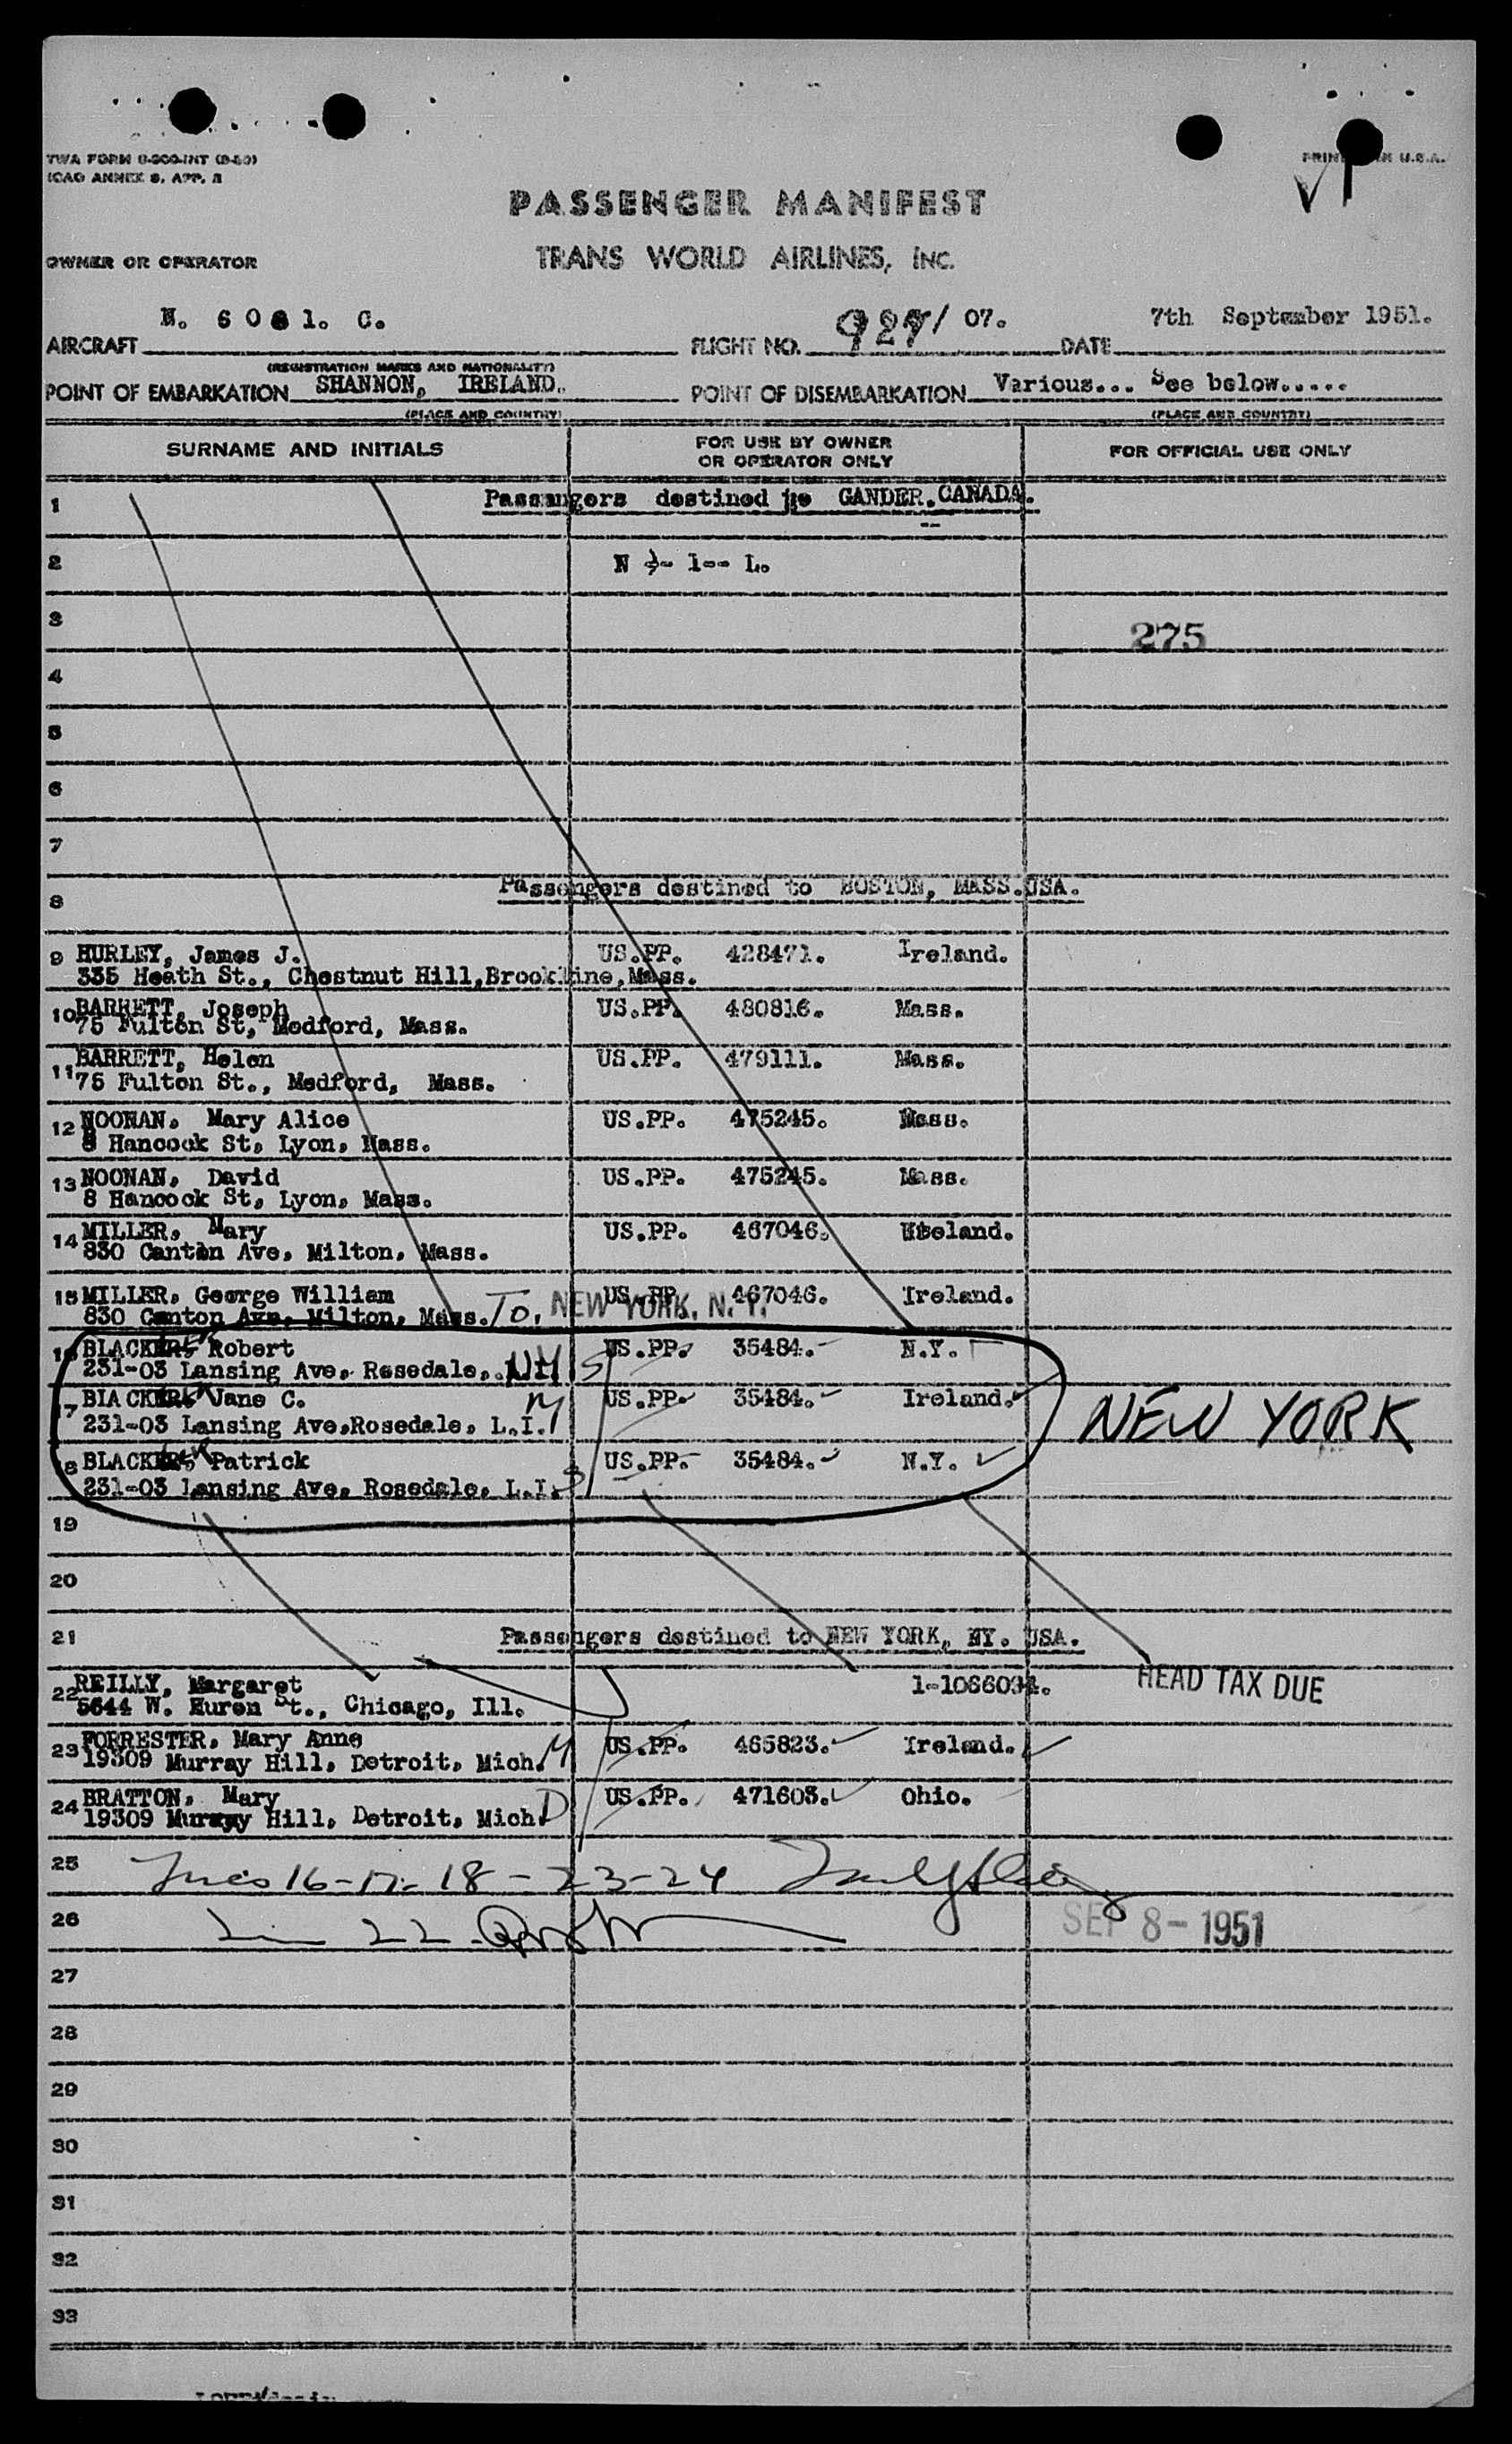 TWA FORM
ICAO ANNEX 9, APP. 2
PRINTED IN U.S.A.
PASSENGER MANIFEST
OWNER OR OPERATOR
TRANS WORLD AIRLINES, INC.
AIRCRAFT N. 6 0 1. C.
FLIGHT NO. / 07.
DATE 7th September 1951.
(REGISTRATION MARKS AND NATIONALITY)
POINT OF EMBARKATION SHANNON, IRELAND.
POINT OF DISEMBARKATION Various... See below.....
(PLACE AND COUNTRY) (PLACE AND COUNTRY)
SURNAME AND INITIALS
FOR USE BY OWNER
OR OPERATOR ONLY
FOR OFFICIAL USE ONLY
1 Passengers destined GANDER. CANADA.
2 N 1-- L.
3 275
4
5
6
7
8 Passengers destined to BOSTON, MASS.USA.
9 HURLEY, James J. US.PP. 428471. Ireland.
335 Heath St., Chestnut Hill,Brookline,Mass.
10 BARRETT, Joseph US.PP. 480816. Mass.
75 Fulton St, Medford, Mass.
11 BARRETT, Helen US.PP. 479111. Mass.
75 Fulton St., Medford, Mass.
12 NOONAN. Mary Alice US.PP. 475245. Mass.
8 Hancock St, Lyon, Mass.
13 NOONAN, David US.PP. 475245. Mass.
8 Hancock St, Lyon, Mass.
14 MILLER, Mary US.PP. 467046.
830 Canton Ave, Milton, Mass.
15 MILLER, George William US.PP. 467046. Ireland.
830 Canton Ave, Milton, Mass. To. NEW YORK, N.Y.
16 BLACKER, Robert US.PP. 35484. N.Y.
231-03 Lansing Ave, Rosedale, NY S
17 BLACKER, Jane C. US.PP. 35484. Ireland.
231-03 Lansing Ave,Rosedale, L.I. M
NEW YORK
18 BLACKER, Patrick US.PP. 35484. N.Y.
231-03 Lansing Ave, Rosedale, L.I. S
19
20
21 Passengers destined to NEW YORK, NY. USA.
22 REILLY, Margaret 1-1066034. HEAD TAX DUE
5644 W. Huron St., Chicago, Ill.
23 FORRESTER, Mary Anne US.PP. 465823. Ireland.
19309 Murray Hill, Detroit, Mich. M
24 BRATTON, Mary US.PP. 471603. Ohio.
19309 Murray Hill, Detroit, Mich. D
25 Lines 16-17-18-23-24
26 Lin 22 SEP 8-1951
27
28
29
30
31
32
33